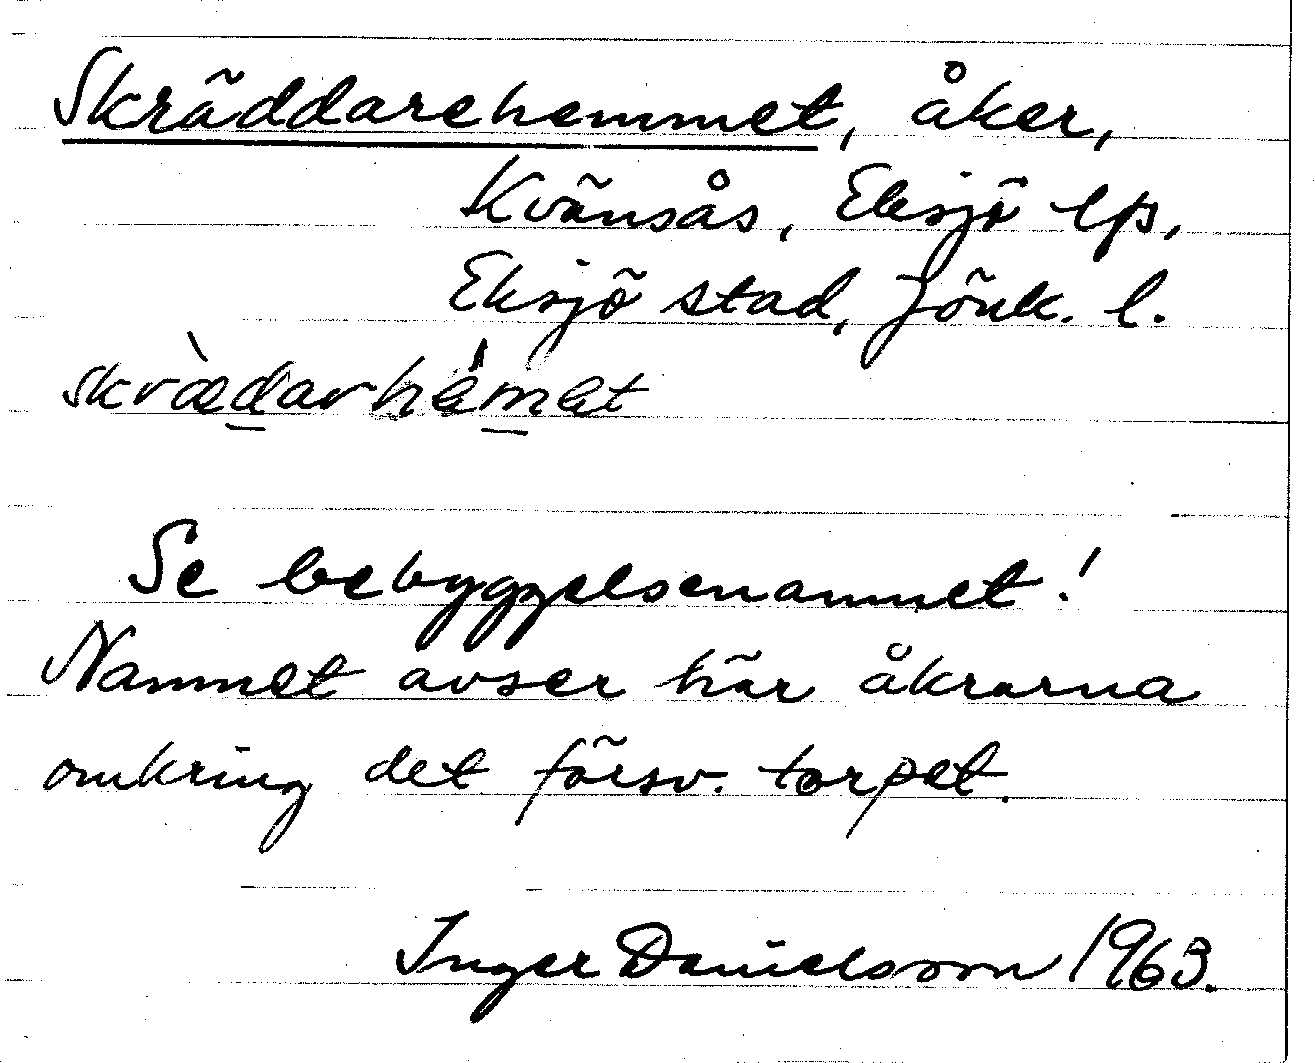 Skräddarehemmet, åker,
Kvänsås, Eksjö lfs,
Eksjö stad, Jönk. l.
skræ̀darhémet
Se bebyggelsenamnet!
Namnet avser här åkrarna
omkring det försv. torpet.
Inger Danielsson 1963.